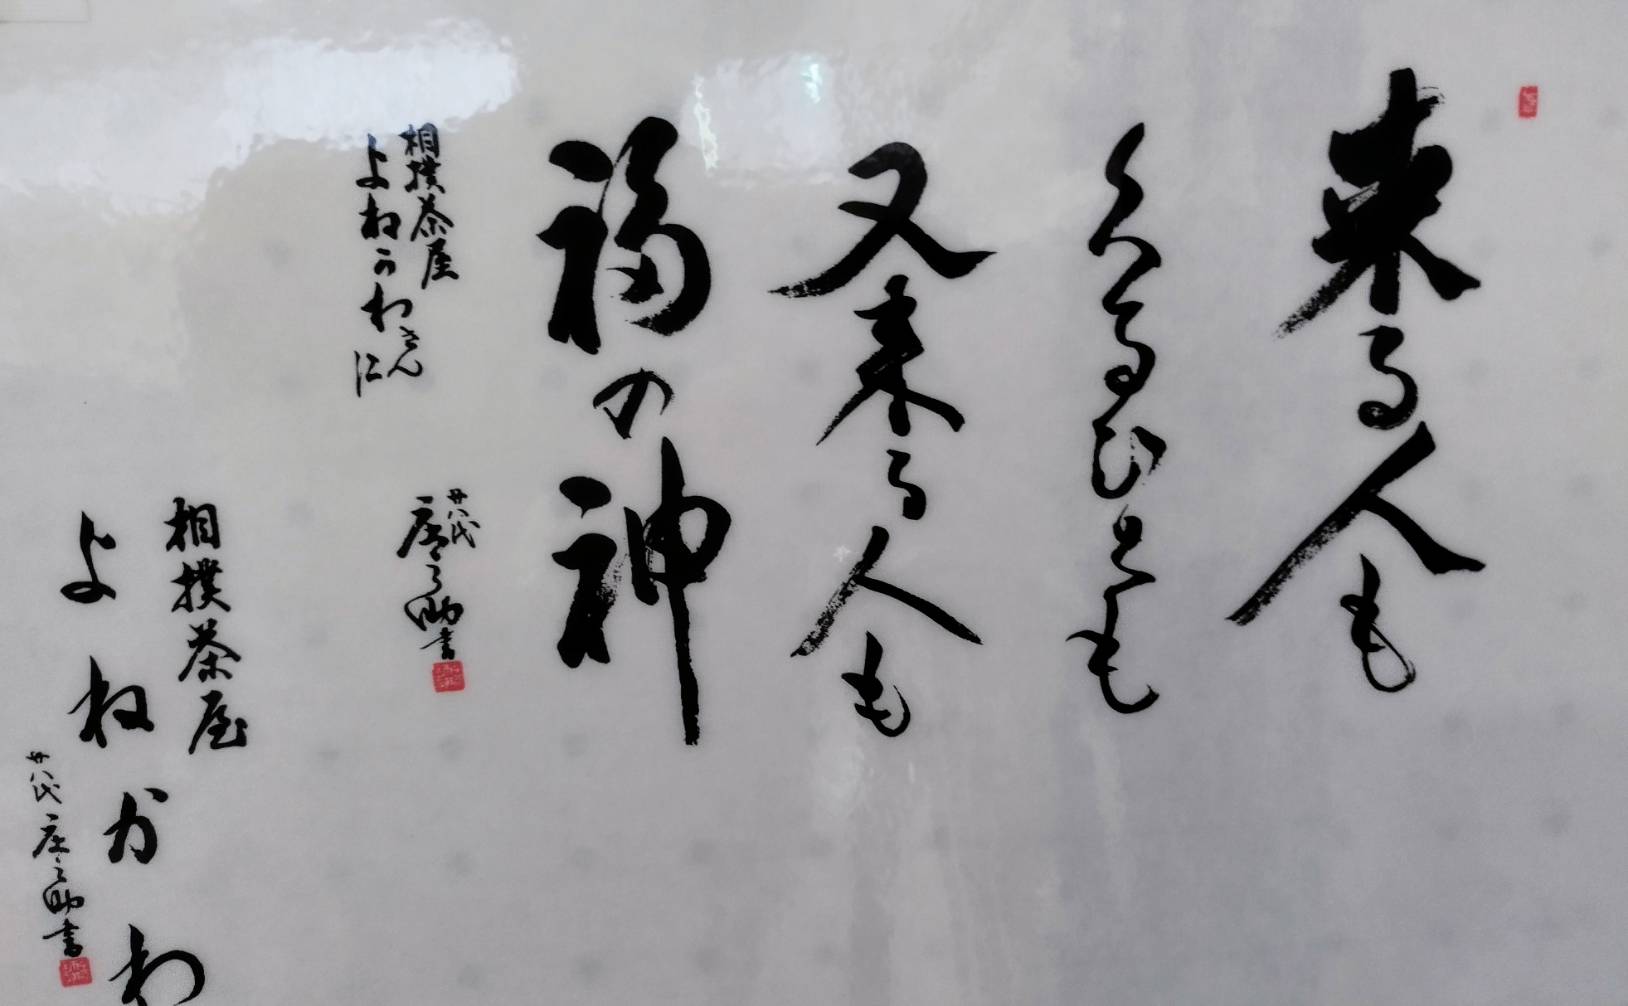 来る人も
くるひとも
又来る人も
福の神
相撲茶屋
よねかわさん
に
廿八代
庄之助書
相撲茶屋
よねかわ
廿八代 庄之助書